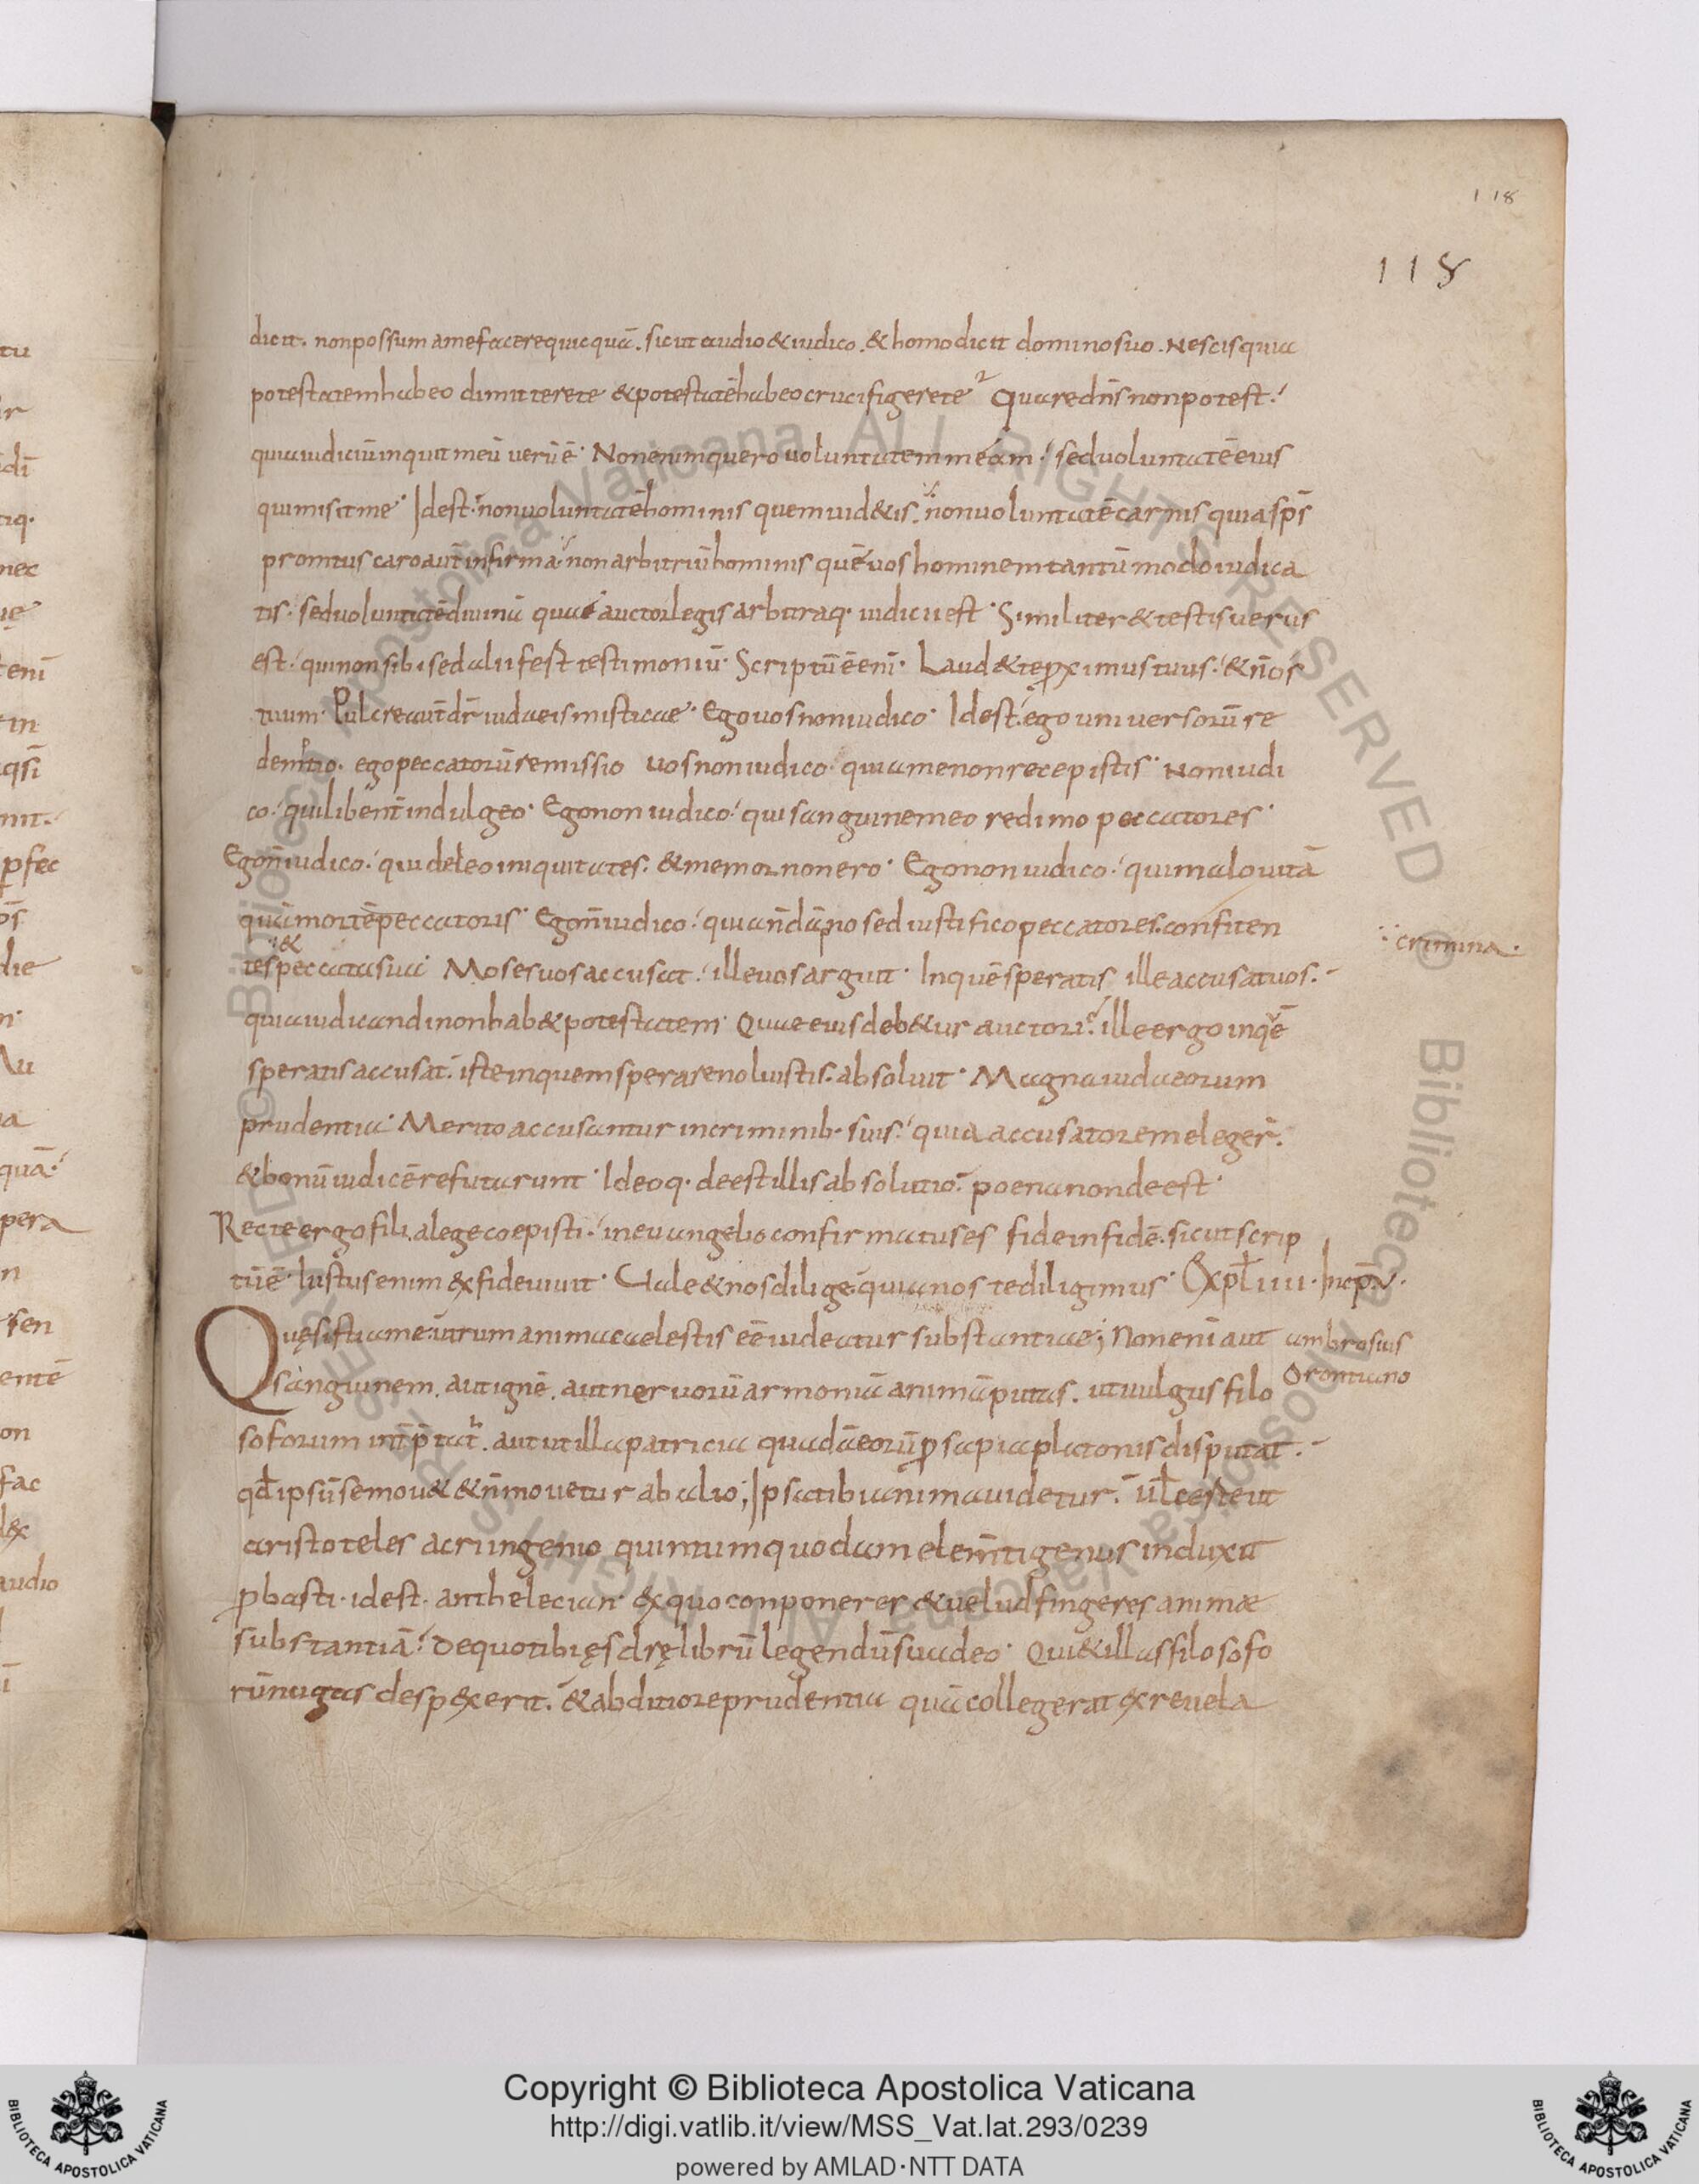 118
118
dicit. non possum a me facere quicquā. sicut audio & iudico. & homo dicit domino suo. Nescis quia
potestatem habeo dimittere te & potestatē habeo crucifigere te Quare dn̄s non potest.
quia iudiciū inquit meū uerū ē. Non enim quero uoluntatem meam. sed uoluntatē eius
qui misit me. Id est. non uoluntatē hominis quem uid&is. non uoluntatē carnis quia sp̄s
promtus caro aut̄ infirma non arbitriū hominis quē uos hominem tantū modo iudica
tis. sed uoluntatē diuinā quae auctor legis arbitraq. iudicii est. Similiter & testis uerus
est. qui non sibi sed alii fert testimoniū. Scriptū ē enī. Laud& te proximus tuus. & n̄ os
tuum. Pulcre aut̄ dr̄ iudaeis misticae. Ego uos non iudico. Id est. ego uniuersorū re
demptio. ego peccatorū remissio uos non iudico. quia me non recepistis. Non iudi
co. qui libent̄ indulgeo. Ego non iudico. qui sanguine meo redimo peccatores.
Ego n̄ iudico. qui deleo iniquitates. & memor non ero. Ego non iudico. qui malo uitā
quā mortē peccatoris. Ego n̄ iudico. quia n̄ dāpno sed iustifico peccatores. confiten
crimina.
&
tes peccata sua. Moses uos accusat. ille uos arguit. In quē speratis ille accusat uos.
quia iudicandi non hab& potestatem. Quae eius deb&ur auctori. ille ergo in quē
speratis accusat. iste in quem sperare noluistis. absoluit. Magna iudaeorum
prudentia. Merito accusantur in criminib. suis. quia accusatorem eleger̄.
& bonū iudicē refutarunt. Ideoq. deest illis absolutio. poena non deest.
Recte ergo fili. a lege coepisti. in euangelio confirmatus es fide in fidē. sicut scrip
tū ē. Iustus enim ex fide uiuit. Uale & nos dilige quia nos te diligimus. Expl̄ iiii. Incp̄ V.
Quęsisti a me. utrum anima caelestis eē uideatur substantiae; Non enī aut
ambrosius
sanguinem. aut ignē. aut neruorū armoniā animā putas. ut uulgus filo
Orontiano
soforum int̄p̄tat̄. aut ut illa patricia quadā eorū prosapia platonis disputat.
qd̄ ipsū se mou& & n̄ mouetur ab alio; Ipsa tibi anima uidetur. ul̄ certe ut
aristoteles acri ingenio quintum quodam elem̄ti genus induxit
probasti. id est. anthelecian. ex quo conponerer & uelud fingeres animæ
substantiā. De quo tibi ęsdrę librū legendū suadeo. Qui & illas filosofo
rū nugas despexerit. & abditiore prudentia quā collegerat ex reuela
Copyright © Biblioteca Apostolica Vaticana
http://digi.vatlib.it/view/MSS_Vat.lat.293/0239
powered by AMLAD·NTT DATA